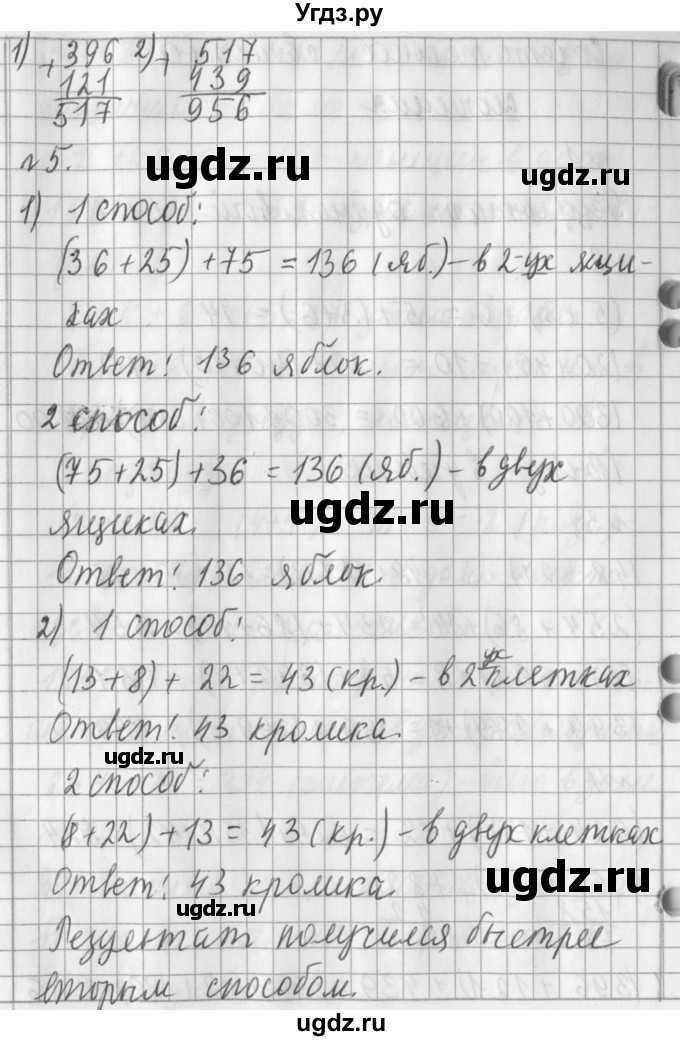 Угдз.ру
1) + 396 2) + 517
121 439
517 956
ugdz.ru ugdz.ru
№5.
1) 1 способ:
(36+25)+75 = 136 (яб.) – в 2-ух ящи-
ках
Ответ: 136 яблок.
2 способ:
(75+25)+36 = 136 (яб.) – в двух
ugdz.ru
ящиках.
Ответ: 136 яблок.
ugdz.ru
2) 1 способ:
(13+8)+ 22 = 43 (кр.) – в 2ух клетках
Ответ: 43 кролика.
ugdz.ru
2 способ:
(8+22)+13 = 43 (кр.) – в двух клетках
Ответ: 43 кролика.
ugdz.ru
ugdz.ru
Результат получился быстрее
вторым способом.
ugdz.ru